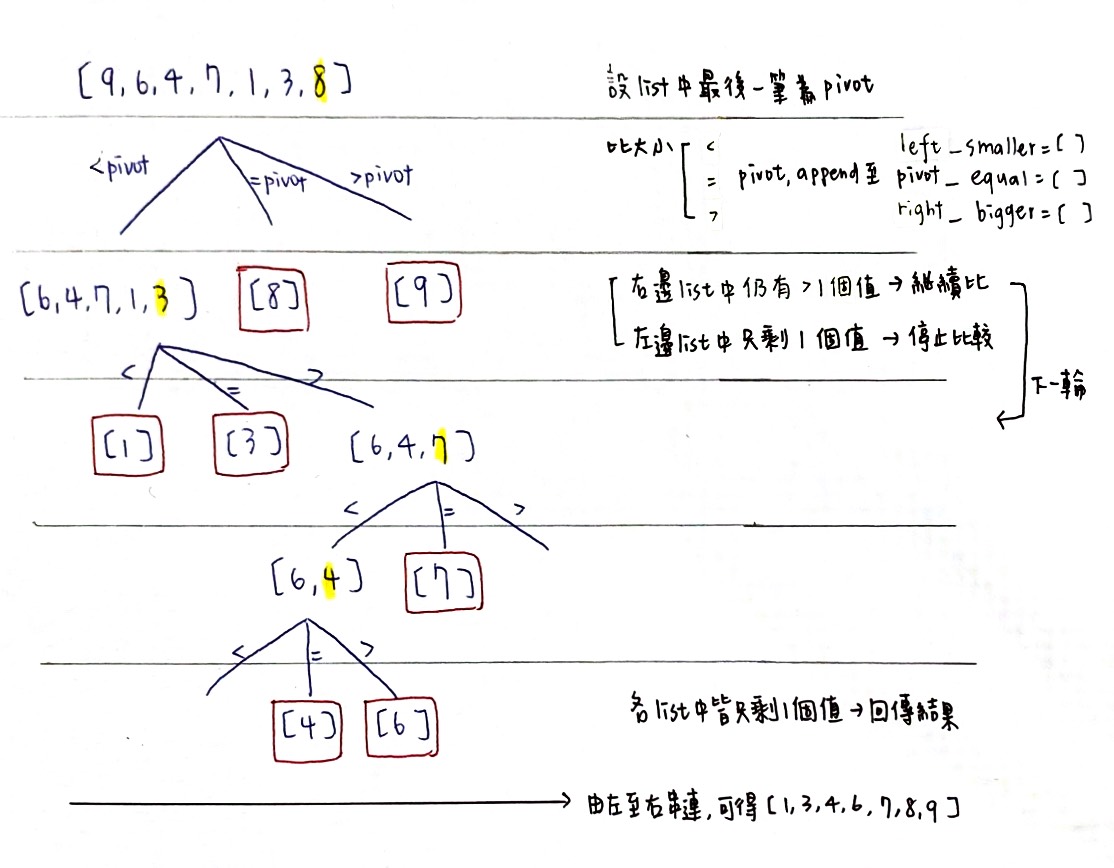 [9,6,4,7,1,3,8]
設list中最後一筆為pivot
<pivot
=pivot
>pivot
比大小 < = > pivot, append至
left_smaller=[ ]
pivot_equal=[ ]
right_bigger=[ ]
[6,4,7,1,3] [8] [9]
右邊list中仍有>1個值→繼續比
左邊list中只剩1個值→停止比較
下一輪
< = >
[1] [3] [6,4,7]
< = >
[6,4] [7]
< = >
[4] [6]
各list中皆只剩1個值→回傳結果
由左至右串連,可得[1,3,4,6,7,8,9]